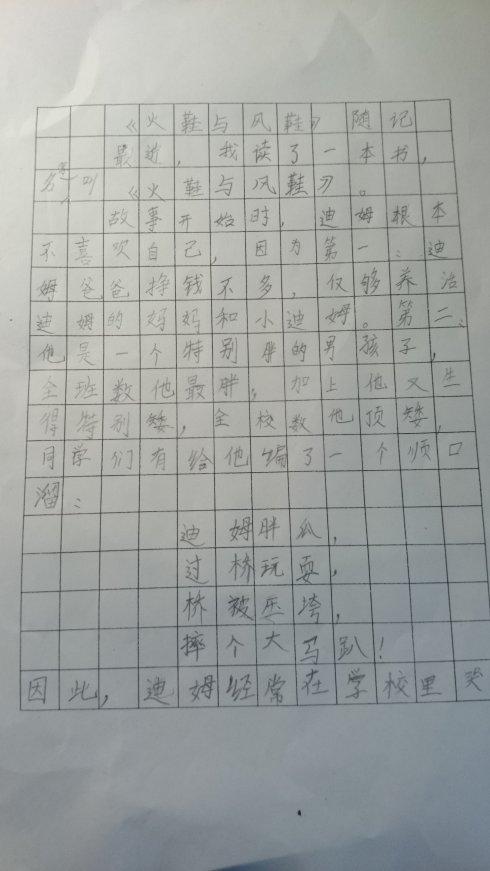 《火鞋与风鞋》随记
最近，我读了一本书，
名字叫《火鞋与风鞋》。
故事开始时，迪姆根本
不喜欢自己，因为第一：迪
姆爸爸挣钱不多，仅够养治
迪姆的妈妈和小迪姆。第二：
他是一个特别胖的男孩子，
全班数他最胖，加上他又生
得特别矮，全校数他顶矮，
同学们有给他编了一个顺口
溜：
迪姆胖瓜，
过桥玩耍，
桥被压垮，
摔个大马趴！
因此，迪姆经常在学校里哭